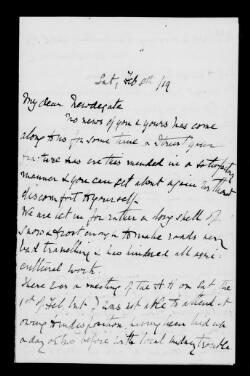 Sat, Feb 8th/19
My dear Newdegate
No news of you & yours has come
along to us for some time & I trust your
has ere this mended in a satisfactory
manner & you can get about again without
discomfort to yourself.
We are let in for rather a long spell of
snow & frost owing to make roads very
bad travelling & has hindered all agri-
cultural work.
There was a meeting of the on Sat the
1st of Feb but I was not able to attend it
owing to indisposition, having been laid up
a day or two before with local trouble